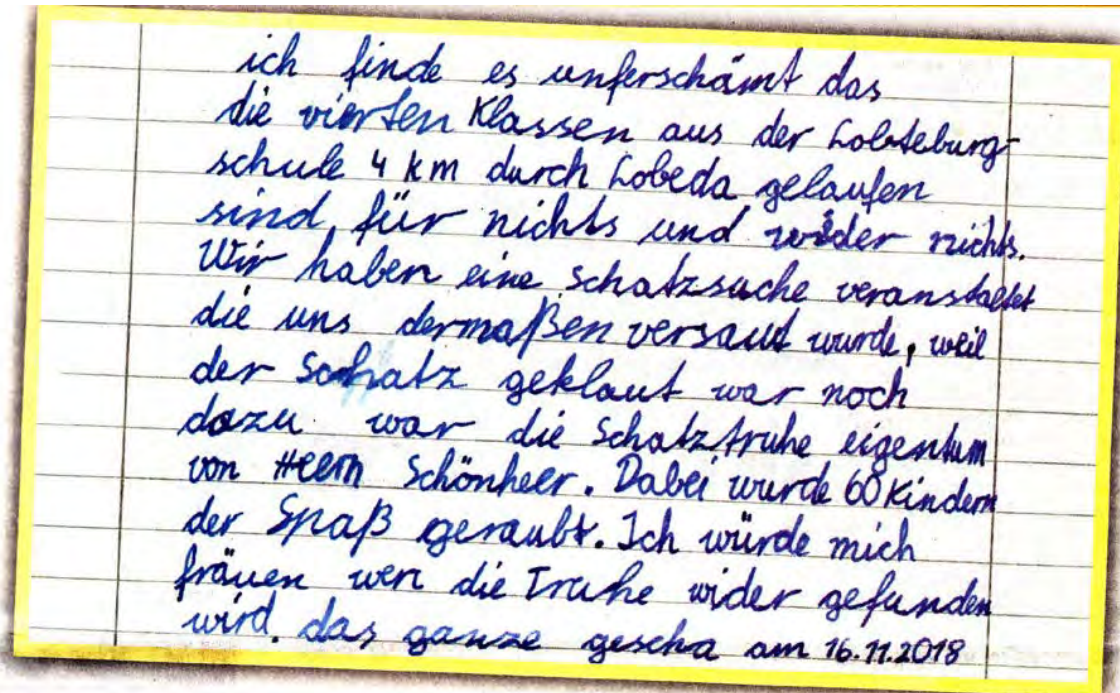 ich finde es unferschämt das
die vierten Klassen aus der Lobdeburg-
schule 4 km durch Lobeda gelaufen
sind für nichts und wider nichts.
Wir haben eine schatzsuche veranstaltet
die uns dermaßen versaut wurde, weil
der Schatz geklaut war noch
dazu war die Schatztruhe eigentum
von Herrn Schönherr. Dabei wurde 60 Kindern
der Spaß geraubt. Ich würde mich
fräuen wen die Truhe wider gefunden
wird. das ganze gescha am 16.11.2018